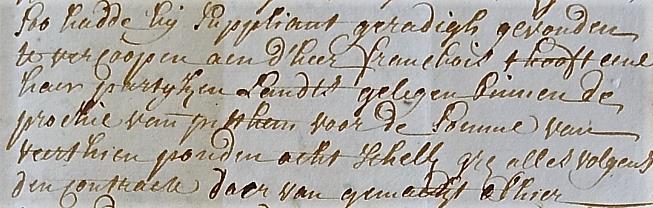 Soo hadde hij Suppliant geradigh gevonden
te vercoopen aen d'heer franchois t'hooft eene
haer partijtgen Landts gelegen binnen de
prochie van pitthem voor de Somme van
veerthien ponden acht schell gr alles volgens
den contracte daer van gemaeckt alhier